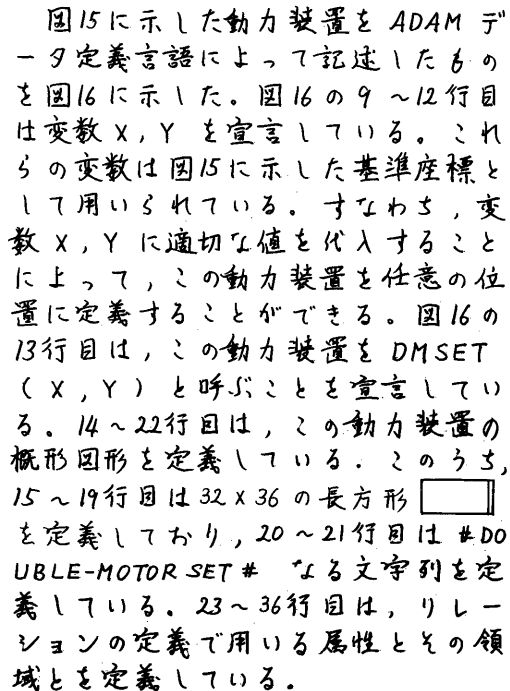 図15に示した動力装置をADAMデ
ータ定義言語によって記述したもの
を図16に示した。図16の9～12行目
は変数X,Yを宣言している。これ
らの変数は図15に示した基準座標と
して用いられている。すなわち,変
数X,Yに適切な値を代入すること
によって,この動力装置を任意の位
置に定義することができる。図16の
13行目は,この動力装置をDMSET
(X,Y)と呼ぶことを宣言してい
る。14～22行目は,この動力装置の
概形図形を定義している.このうち,
15～19行目は32×36の長方形
を定義しており,20～21行目は#DO
UBLE-MOTOR SET# なる文字列を定
義している。23～36行目は,リレー
ションの定義で用いる属性とその領
域とを定義している.